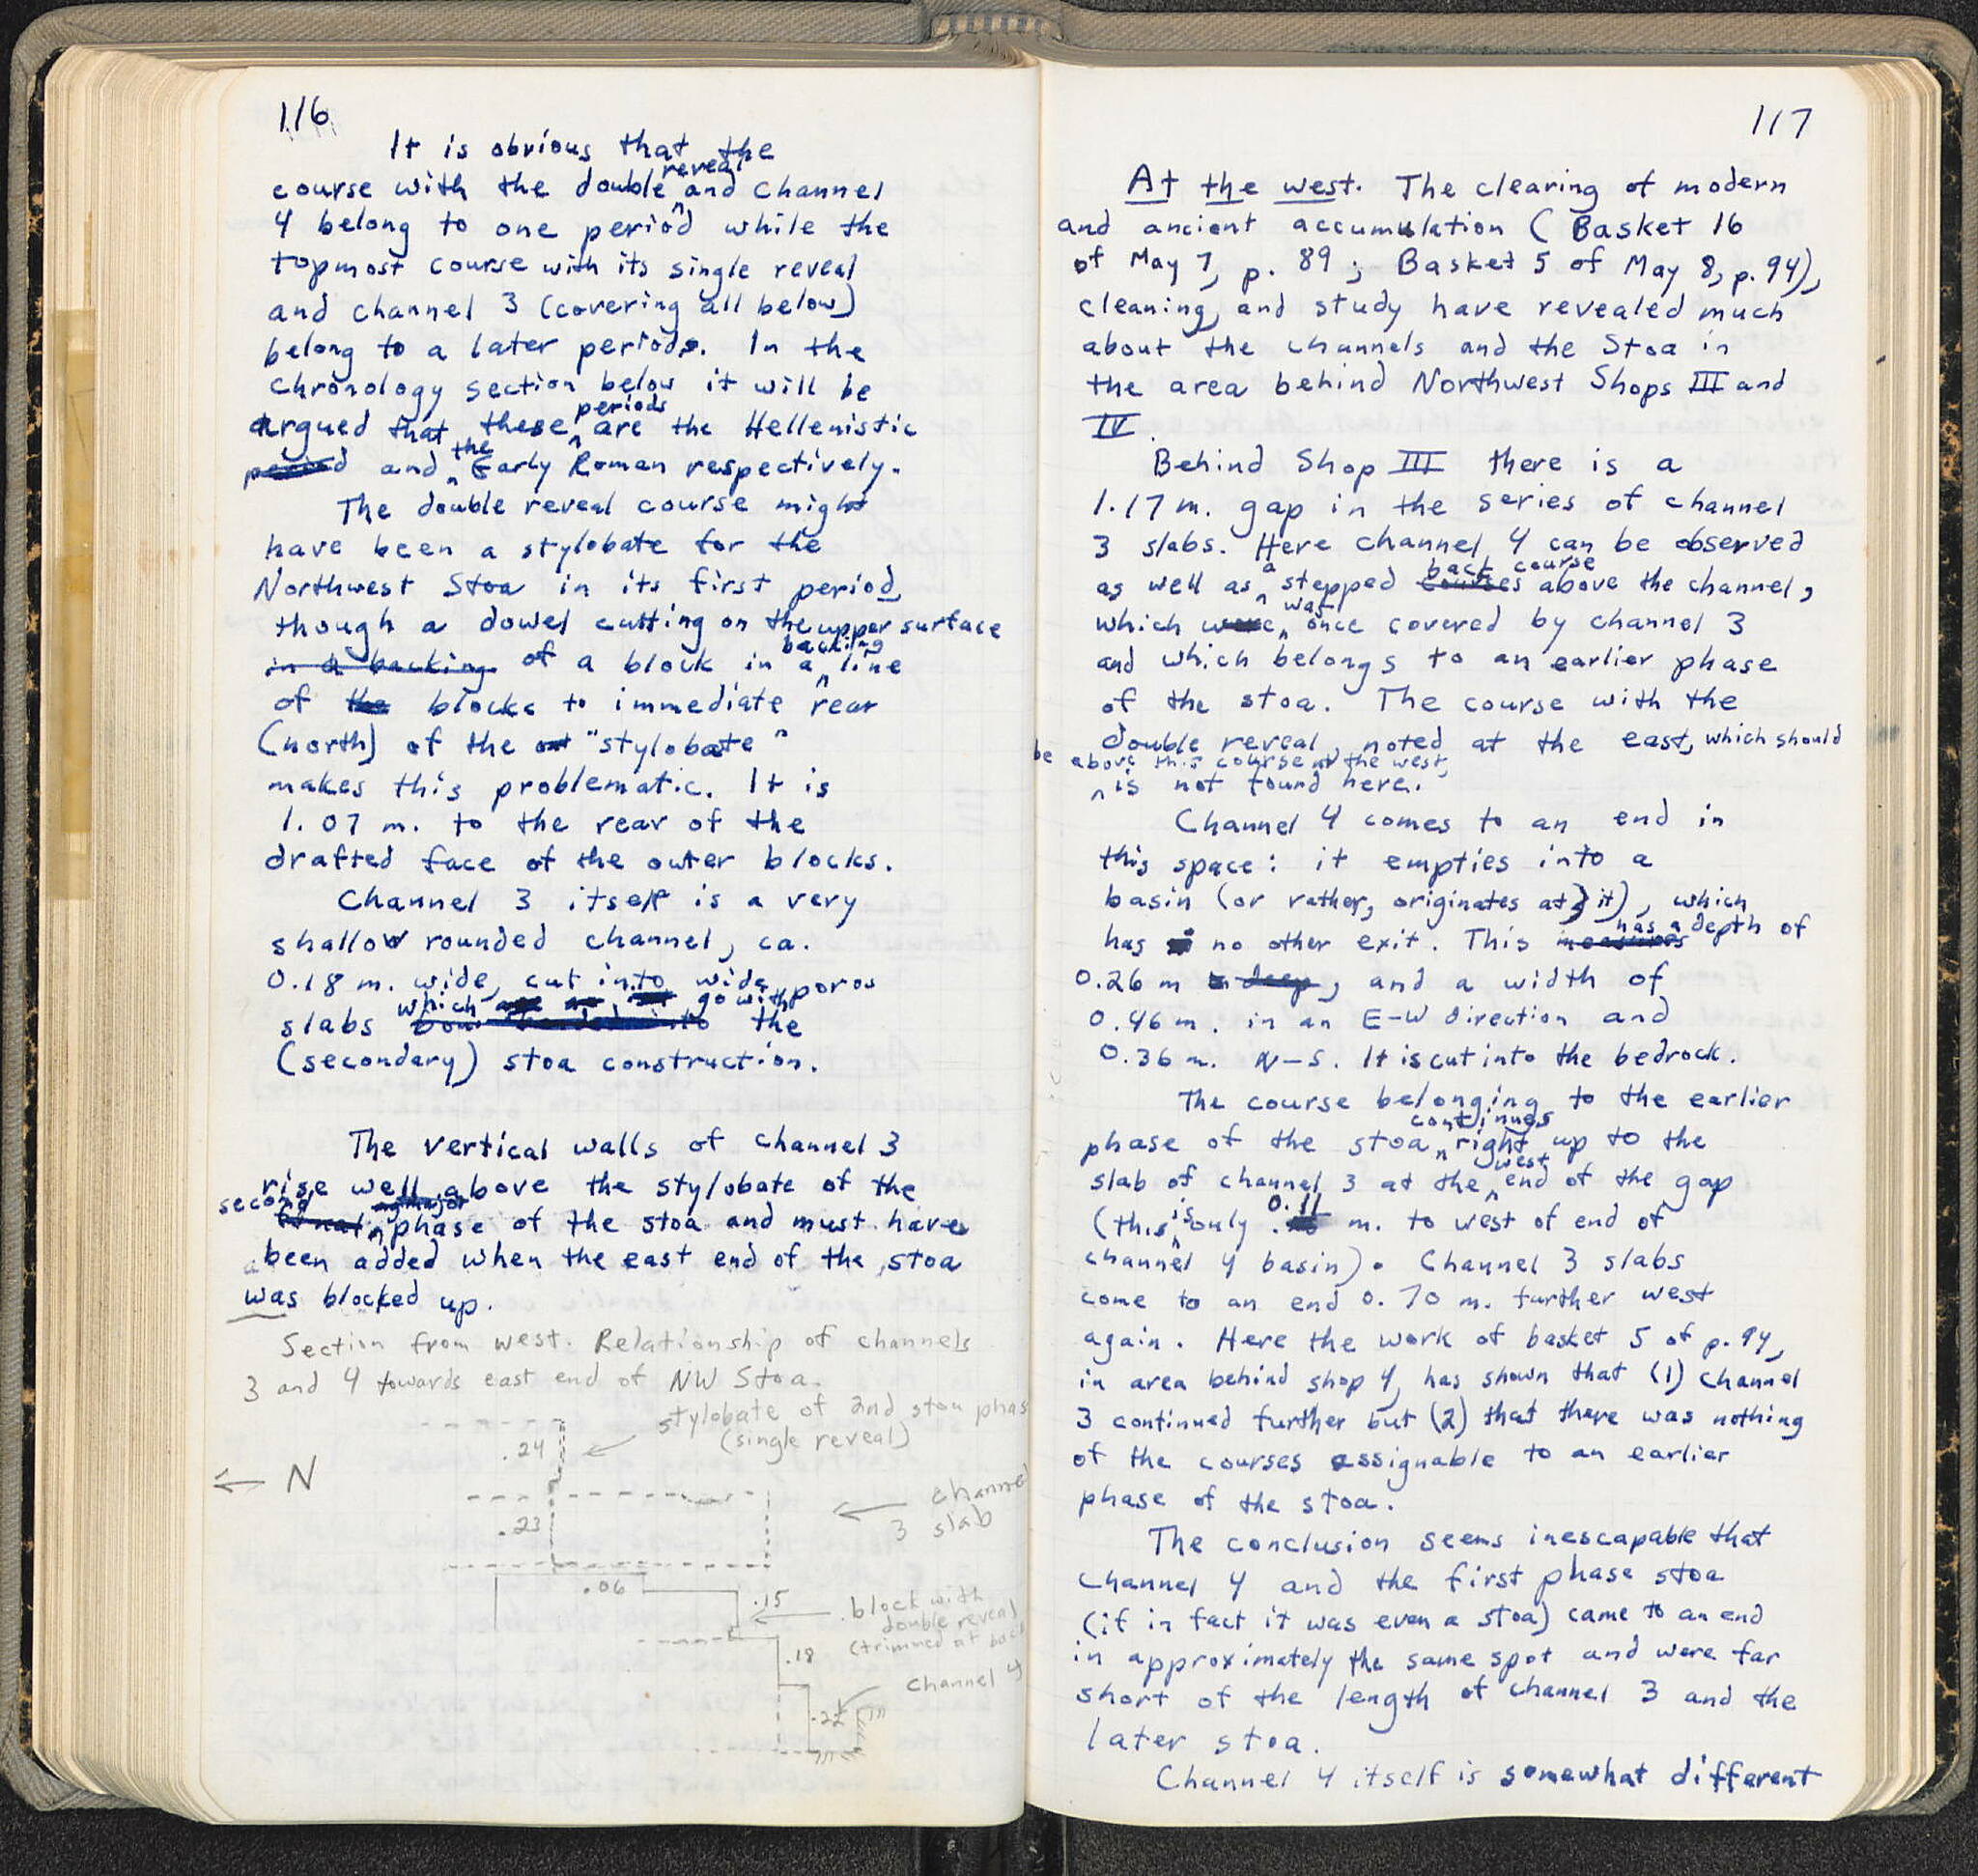 116
It is obvious that the
course with the double reveal and channel
4 belong to one period while the
topmost course with its single reveal
and channel 3 (covering all below)
belong to a later period. In the
chronology section below it will be
argued that these periods are the Hellenistic
period and the Early Roman respectively.
The double reveal course might
have been a stylobate for the
Northwest Stoa in its first period,
though a dowel cutting on the upper surface
in a backing of a block in a backing line
of the blocks to immediate rear
(north) of the "stylobate"
makes this problematic. It is
1.07 m. to the rear of the
drafted face of the outer blocks.
Channel 3 itself is a very
shallow rounded channel, ca.
0.18 m. wide, cut into wide, poros
slabs which go with the
(secondary) stoa construction.
The vertical walls of channel 3
rise well above the stylobate of the
second major phase of the stoa and must have
been added when the east end of the stoa
was blocked up.
Section from west. Relationship of channels
3 and 4 towards east end of NW Stoa.
stylobate of 2nd stoa phas
(single reveal)
.24
N
channel
3 slab
.23
.06
.15
block with
double reveal
(trimmed at back
.18
channel 4
.22
117
At the west. The clearing of modern
and ancient accumulation (Basket 16
of May 7, p. 89; Basket 5 of May 8, p. 94),
cleaning, and study have revealed much
about the channels and the Stoa in
the area behind Northwest Shops III and
IV.
Behind Shop III there is a
1.17 m. gap in the series of channel
3 slabs. Here channel 4 can be observed
as well as a stepped back course above the channel,
which was once covered by channel 3
and which belongs to an earlier phase
of the stoa. The course with the
double reveal, noted at the east, which should
be above this course at the west,
is not found here.
Channel 4 comes to an end in
this space: it empties into a
basin (or rather, originates at it), which
has no other exit. This has a depth of
0.26 m deep, and a width of
0.46 m. in an E-W direction and
0.36 m. N-S. It is cut into the bedrock.
The course belonging to the earlier
phase of the stoa continues right up to the
slab of channel 3 at the west end of the gap
(this is only 0.11 m. to west of end of
channel 4 basin). Channel 3 slabs
come to an end 0.70 m. further west
again. Here the work of basket 5 of p. 94,
in area behind shop 4, has shown that (1) channel
3 continued further but (2) that there was nothing
of the courses assignable to an earlier
phase of the stoa.
The conclusion seems inescapable that
channel 4 and the first phase stoa
(if in fact it was even a stoa) came to an end
in approximately the same spot and were far
short of the length of channel 3 and the
later stoa.
Channel 4 itself is somewhat different